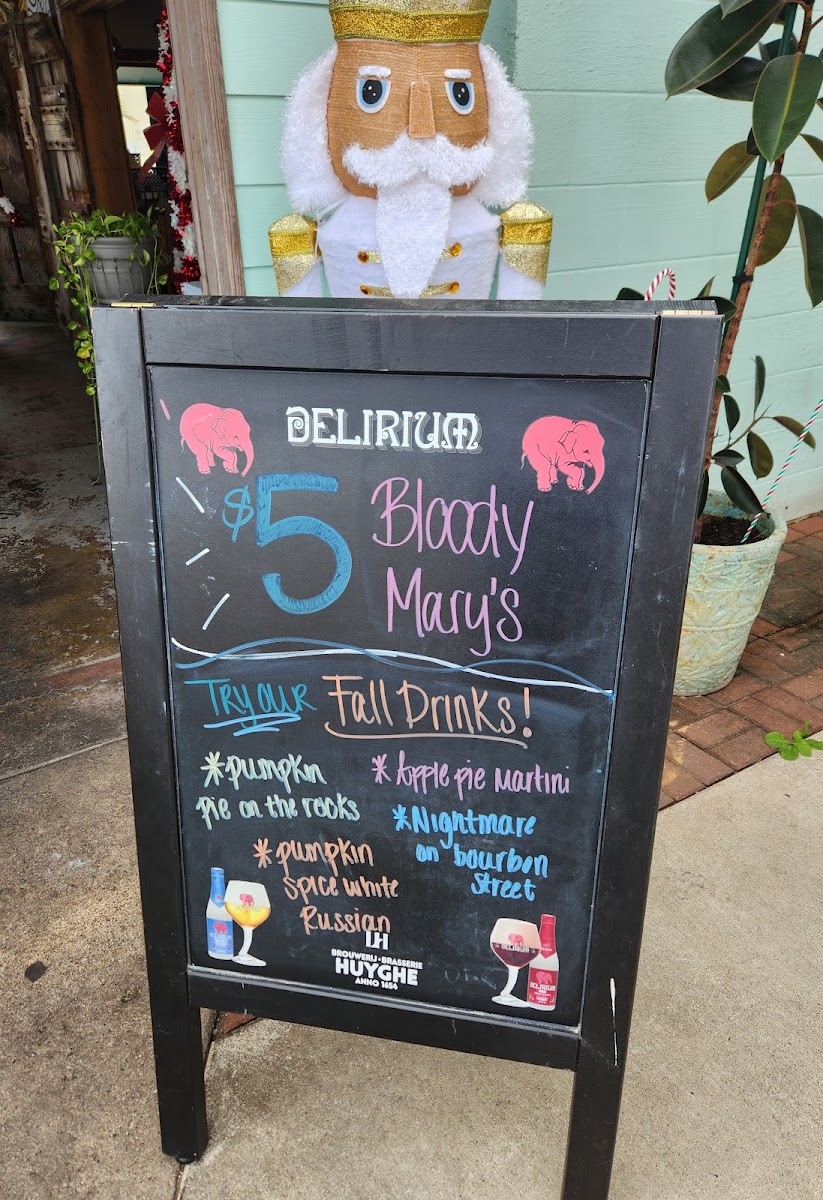 DELIRIUM
$5 Bloody
Mary's
TRY OUR Fall Drinks!
*pumpkin
pie on the rocks
*Apple pie Martini
*Nightmare
on bourbon
Street
*pumpkin
spice white
Russian
LH
BROUWERIJ • BRASSERIE
HUYGHE
ANNO 1654
DELIRIUM